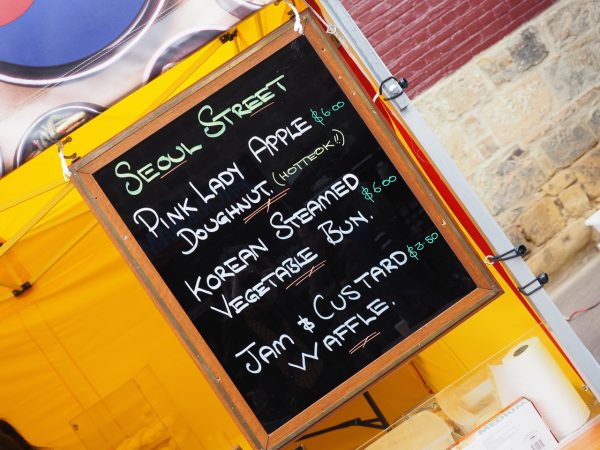 SEOUL STREET
PINK LADY APPLE $6.00
DOUGHNUT. (HOTTEOK!!)
KOREAN STEAMED $6.00
VEGETABLE BUN.
JAM & CUSTARD $3.50
WAFFLE.
MEDIUM